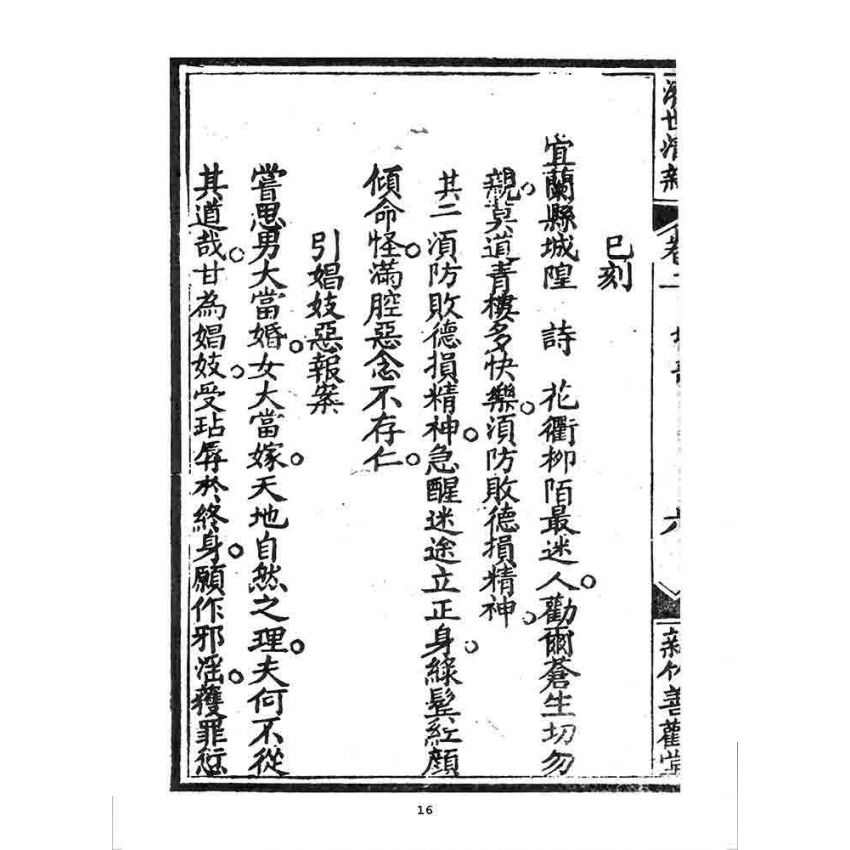 濟世清新
卷二
六
新竹善觀堂
巳刻
宜蘭縣城隍　詩　花衢柳陌最迷人。勸爾蒼生切勿
親。莫道青樓多快樂。湏防敗德損精神。
其二　湏防敗德損精神。急醒迷途立正身。綠鬓紅顏
傾命怪。滿腔惡念不存仁。
引娼妓惡報案
嘗思男大當婚。女大當嫁。天地自然之理。夫何不從
其道哉。甘為娼妓。受玷辱於終身。願作邪滛。獲罪愆
16